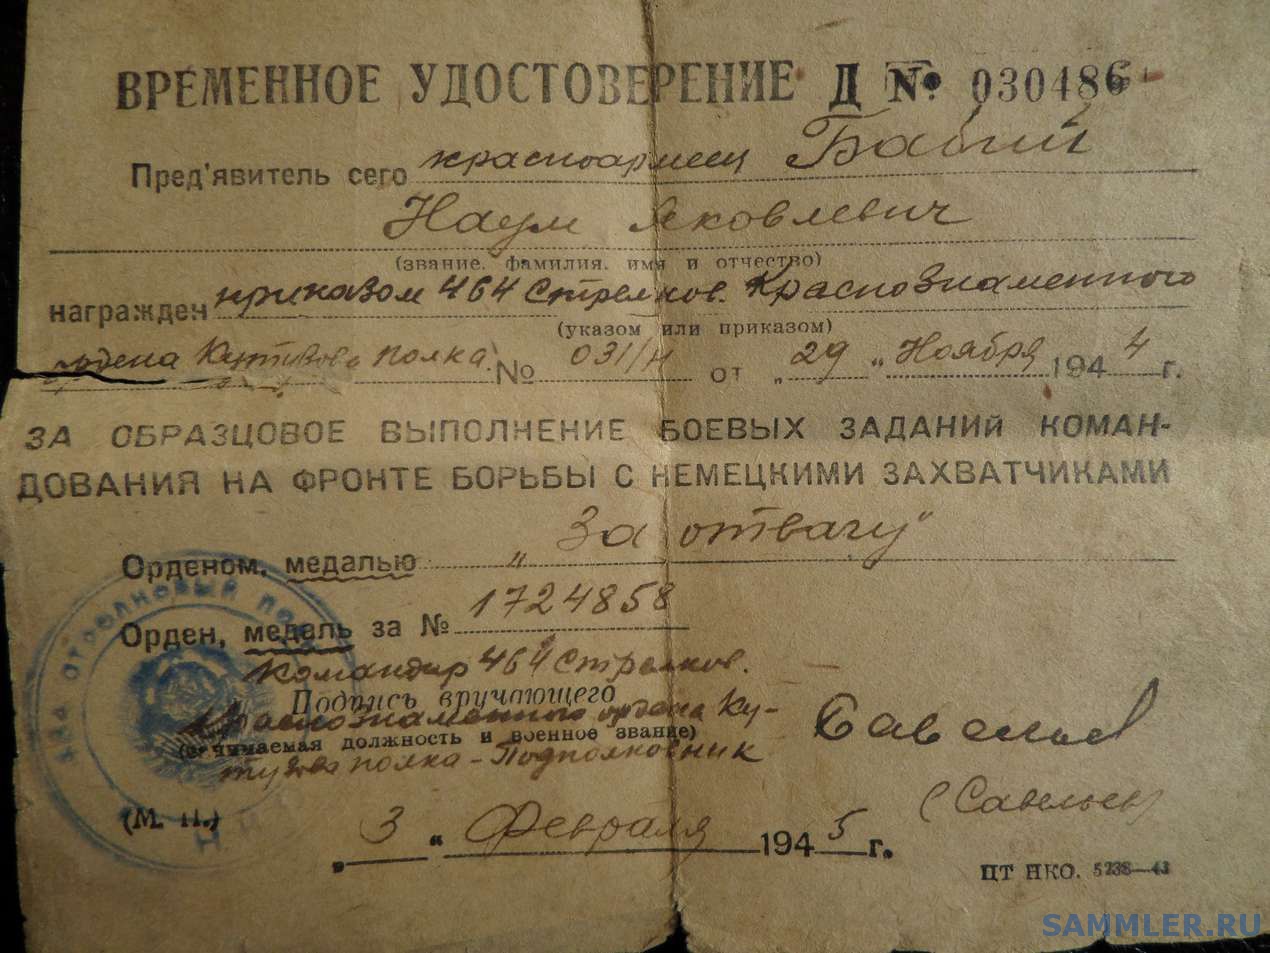 ВРЕМЕННОЕ УДОСТОВЕРЕНИЕ Д № 030486
Пред'явитель сего красноармеец Бабий
Наум Яковлевич
(звание, фамилия, имя и отчество)
награжден приказом 464 Стрелков. Краснознаменного
(указом или приказом)
ордена Кутузова полка № 031/н от „29„ Ноября 1944 г.
ЗА ОБРАЗЦОВОЕ ВЫПОЛНЕНИЕ БОЕВЫХ ЗАДАНИЙ КОМАН-
ДОВАНИЯ НА ФРОНТЕ БОРЬБЫ С НЕМЕЦКИМИ ЗАХВАТЧИКАМИ
Орденом, медалью „За отвагу"
Орден, медаль за № 1724858
Командир 464 Стрелков.
Подпись вручающего
Краснознаменного ордена Ку-
(занимаемая должность и военное звание)
тузова полка - Подполковник
Савельев
(Савельев)
(М. П.)
„3" Февраля 1945 г.
ЦТ НКО. 5238—43
СТРЕЛКОВЫЙ
SAMMLER.RU